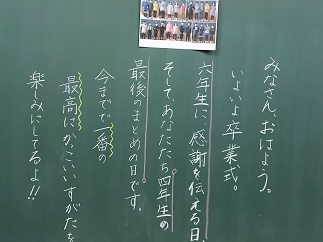 みなさん、おはよう。
いよいよ卒業式。
六年生に、感謝を伝える日
そして、あなたたち四年生の
最後のまとめの日です。
今までで一番の
最高にかっこいいすがたを
楽しみにしてるよ!!